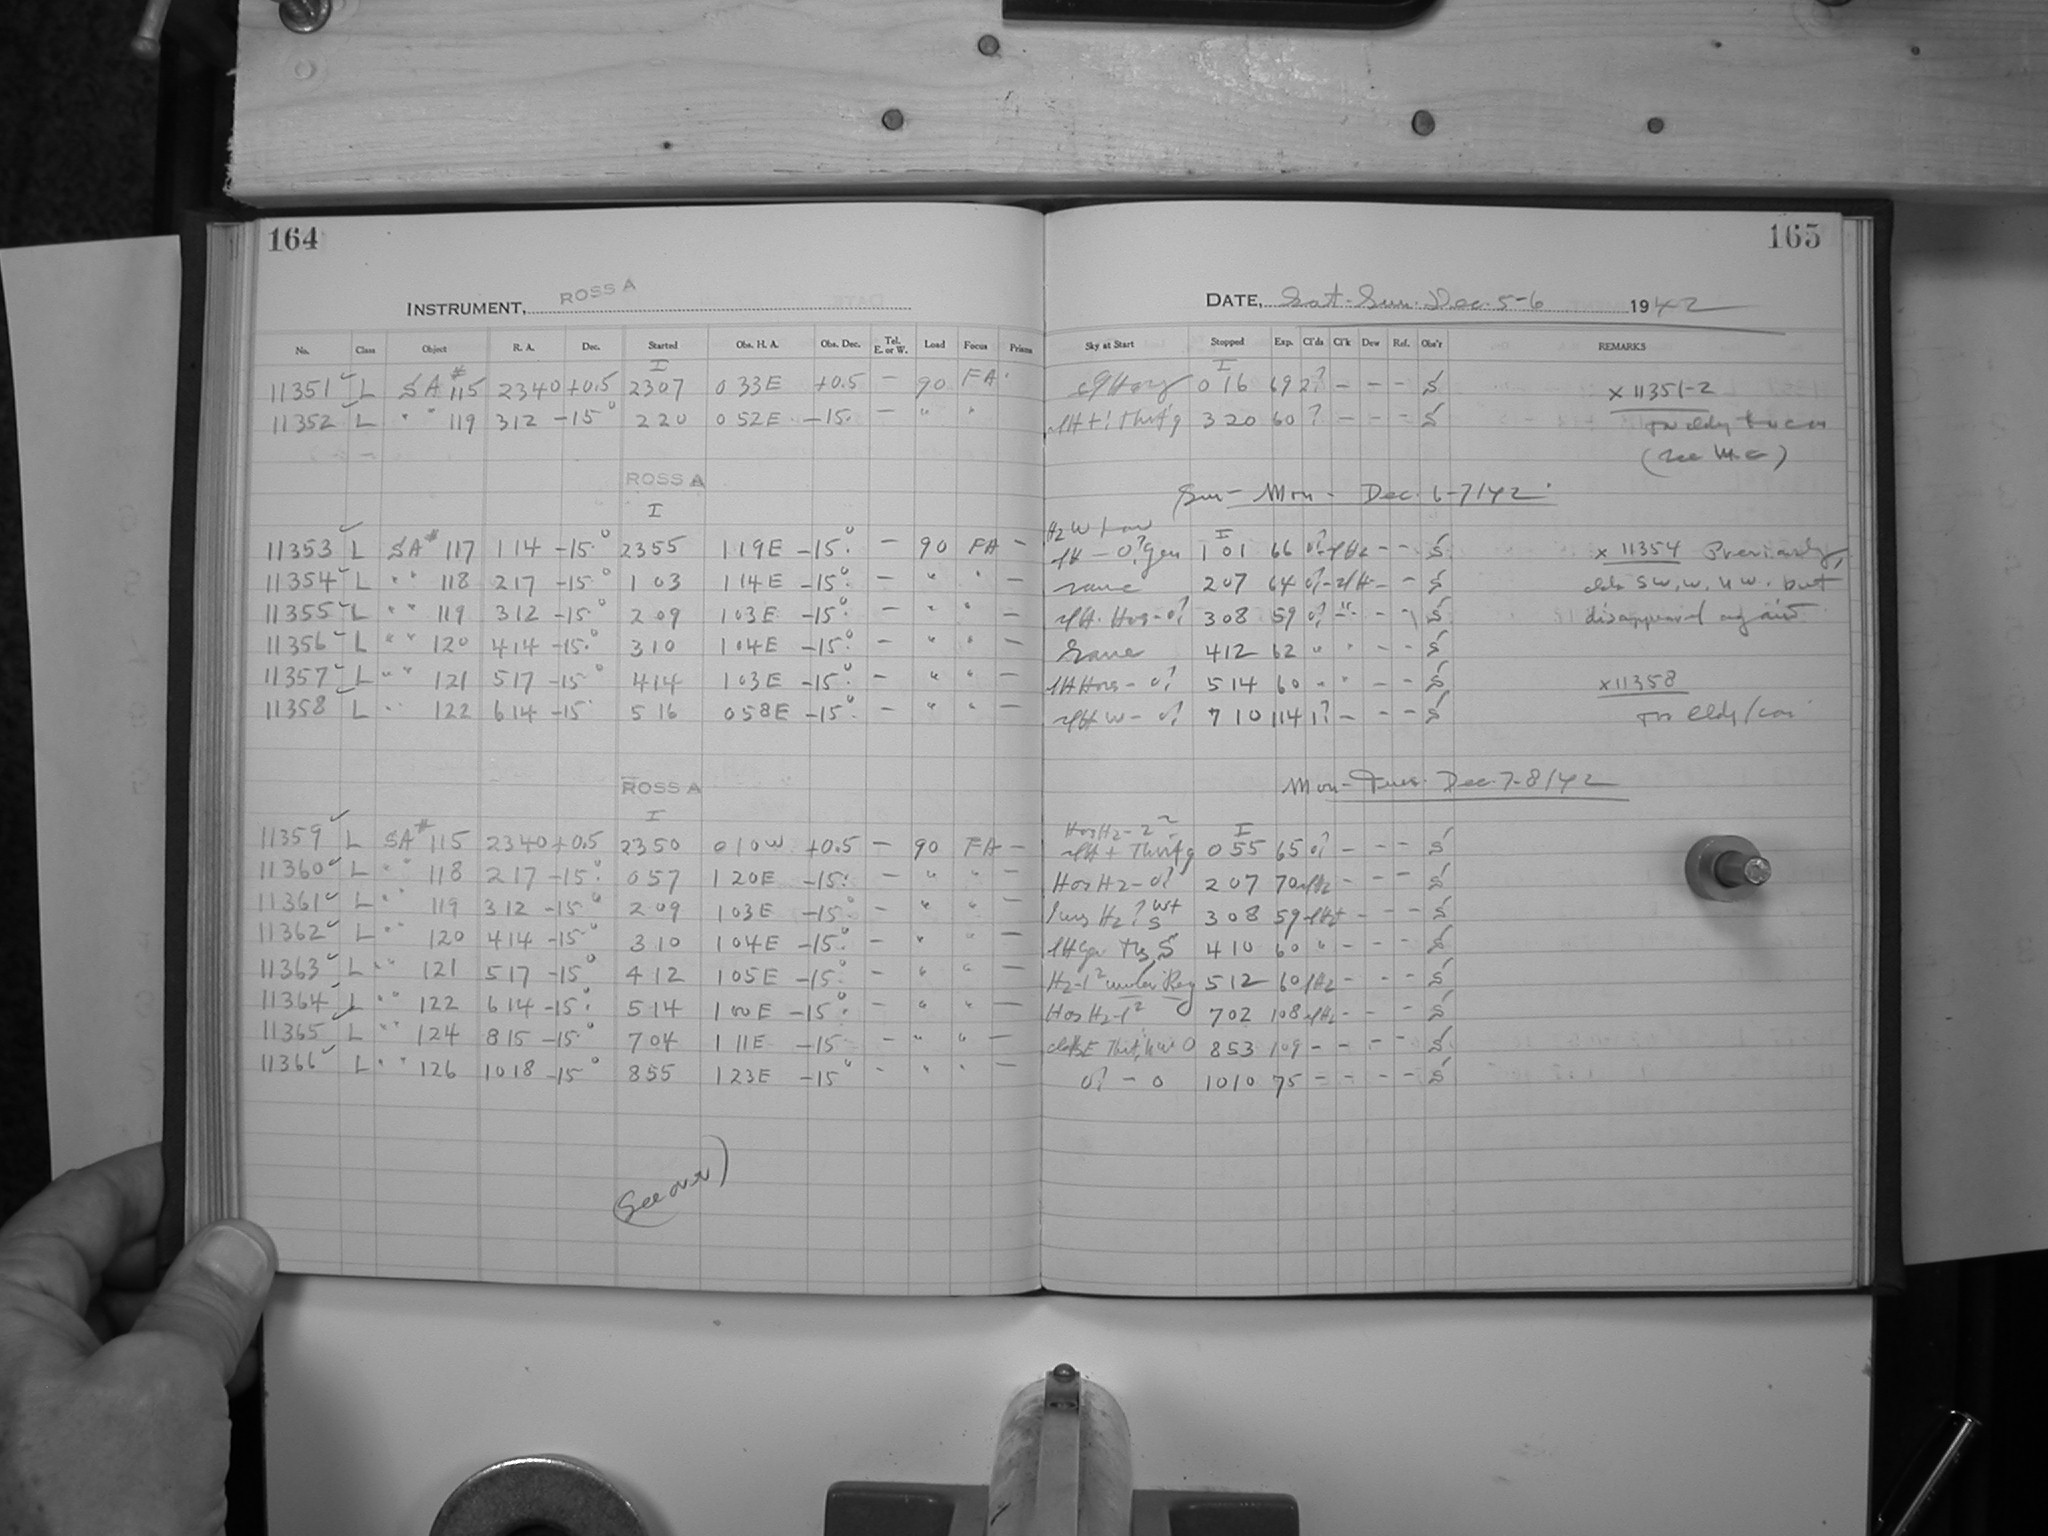 164
INSTRUMENT, ROSS A
No. Class Object R. A. Dec. Started Obs. H. A. Obs. Dec. Tel. E. or W. Load Focus Prism
I
11351 ✓ L SA #115 2340 +0.5 2307 0 33E +0.5 — 90 FA
11352 ✓ L " " 119 312 -15° 2 20 0 52E -15. — " "
ROSS A
I
11353 ✓ L SA # 117 1 14 -15° 2355 1 19E -15° — 90 FA —
11354 ✓ L " " 118 217 -15° 1 03 1 14E -15° — " " —
11355 ✓ L " " 119 312 -15° 2 09 1 03E -15° — " " —
11356 ✓ L " " 120 414 -15° 3 10 1 04E -15° — " " —
11357 ✓ L " " 121 517 -15° 4 14 1 03E -15° — " " —
11358 ✓ L " 122 614 -15° 5 16 0 58E -15° — " " —
ROSS A
I
11359 ✓ L SA # 115 2340 +0.5 2350 0 10W +0.5 — 90 FA —
11360 ✓ L " " 118 217 -15° 0 57 1 20E -15° — " " —
11361 ✓ L " " 119 312 -15° 2 09 1 03E -15° — " " —
11362 ✓ L " " 120 414 -15° 3 10 1 04E -15° — " " —
11363 ✓ L " " 121 517 -15° 4 12 1 05E -15° — " " —
11364 ✓ L " " 122 614 -15° 5 14 1 00E -15° — " " —
11365 ✓ L " " 124 815 -15° 7 04 1 11E -15 — " " —
11366 ✓ L " " 126 1018 -15° 8 55 1 23E -15° — " " —
(See over)
165
DATE, Sat-Sun. Dec. 5-6 1942
Sky at Start Stopped Exp. Cl'ds Cl'k Dew Ref. Obs'r REMARKS
I
0 16 69 2? — — — S x 11351-2
3 20 60 ? — — — S
(see
Sun- Mon- Dec. 6-7/42
H2 W I
1 01 66 0? — — S x 11354 Previously,
same 2 07 64 0? — — S clds SW, W, NW. but
3 08 59 0? " — — S disappeared again
Same 4 12 62 " " — — S
5 14 60 " " — — S x11358
W - 0? 7 10 114 1? — — — S
Mon-Tues. Dec. 7-8/42
Hor H2-2 I
0 55 65 0? — — — S
Hor H2-0? 2 07 70 — — — S
H2? 3 08 59 — — — S
4 10 60 " — — — S
H2-1² under Reg 5 12 60 — — — S
Hor H2-1² 7 02 108 — — — S
8 53 109 — — — — S
0? — 0 1010 75 — — — — S